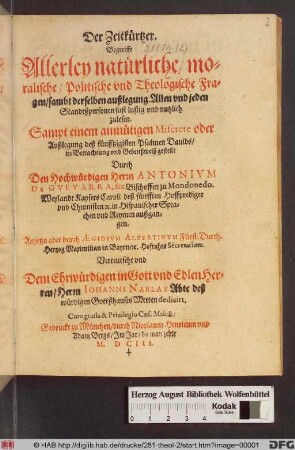 2
Der Zeitkürtzer.
Begreifft
Allerley natürliche, mo-
ralische/ Politische vnd Theologische Fra-
gen/ sambt derselben außlegung. Allen vnd jeden
Standtspersonen fast lustig vnd nutzlich
zulesen.
Sampt einem anmütigen Miserere oder
Außlegung deß fünfftzigisten Psalmen Dauids/
in Betrachtung vnd Gebettsweiß gestellt
Durch
Den Hochwürdigen Herrn ANTONIVM
DE GVEVARRA, &c. Bischoffen zu Mondonedo.
Weylandt Kaysers Caroli deß fünfften Hoffprediger
vnd Chronisten &c. in Hispanischer Spra-
chen vnd Reymen außgan-
gen.
Anjetzo aber durch ÆGIDIVM ALBERTINVM Fürst: Durch:
Hertzog Maximilian in Bayrn &c. Hofrahts Secretarium.
Verteutscht vnd
Dem Ehrwürdigen in Gott vnd Edlen Her-
ren/ Herrn IOHANNI NABLAS Abte deß
würdigen Gottßhauß Metten dediciert,
Cum gratia & Priuilegio Cæs. Maiest:
Gedruckt zu München/ durch Nicolaum Henricum vnd
Adam Berg/ Im Jar/ da man zehlt
M. D CIII.
Herzog August Bibliothek Wolfenbüttel
Kodak
© HAB http://diglib.hab.de/drucke/261-theol-2/start.htm?image=00001
DFG